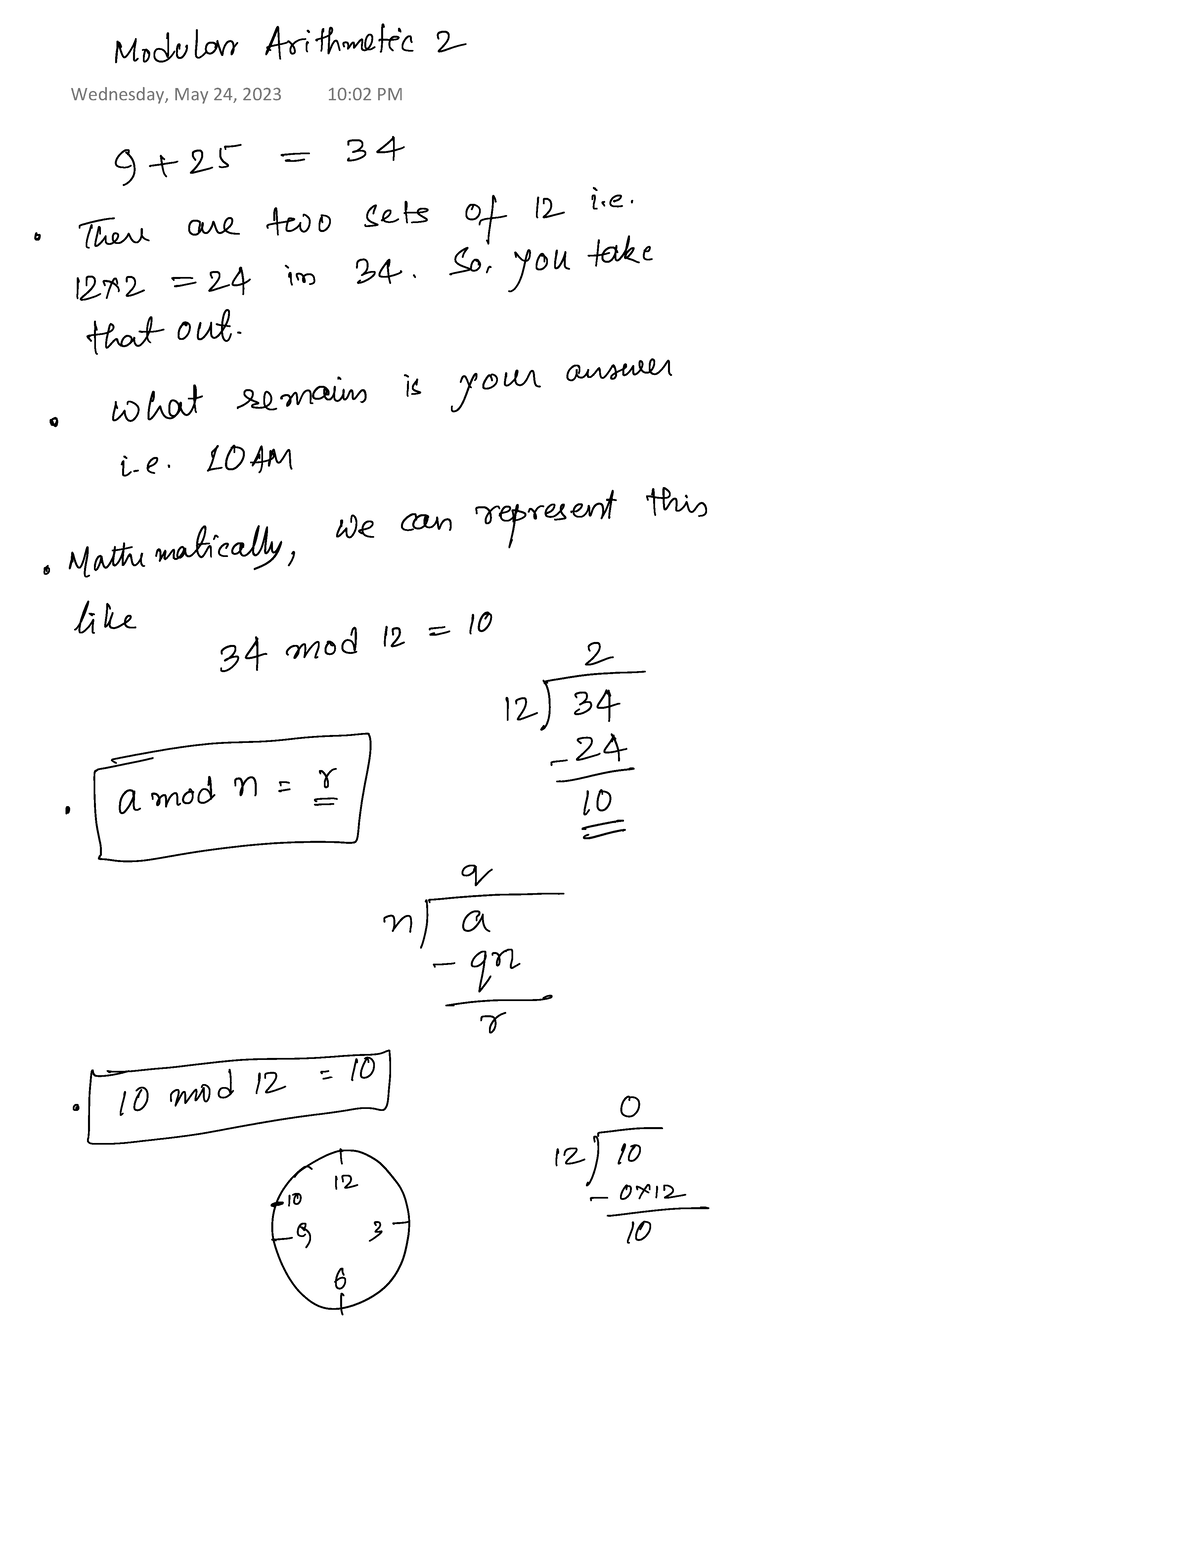 Modular Arithmetic 2
Wednesday, May 24, 2023 10:02 PM
9 + 25 = 34
• There are two sets of 12 i.e.
12×2 = 24 in 34. So, you take
that out.
• What remains is your answer
i.e. 10 AM
• Mathematically, we can represent this
like
34 mod 12 = 10
2
12) 34
- 24
10
• a mod n = r
q
n) a
- qn
r
• 10 mod 12 = 10
0
12) 10
- 0×12
10
12
10
9 3
6